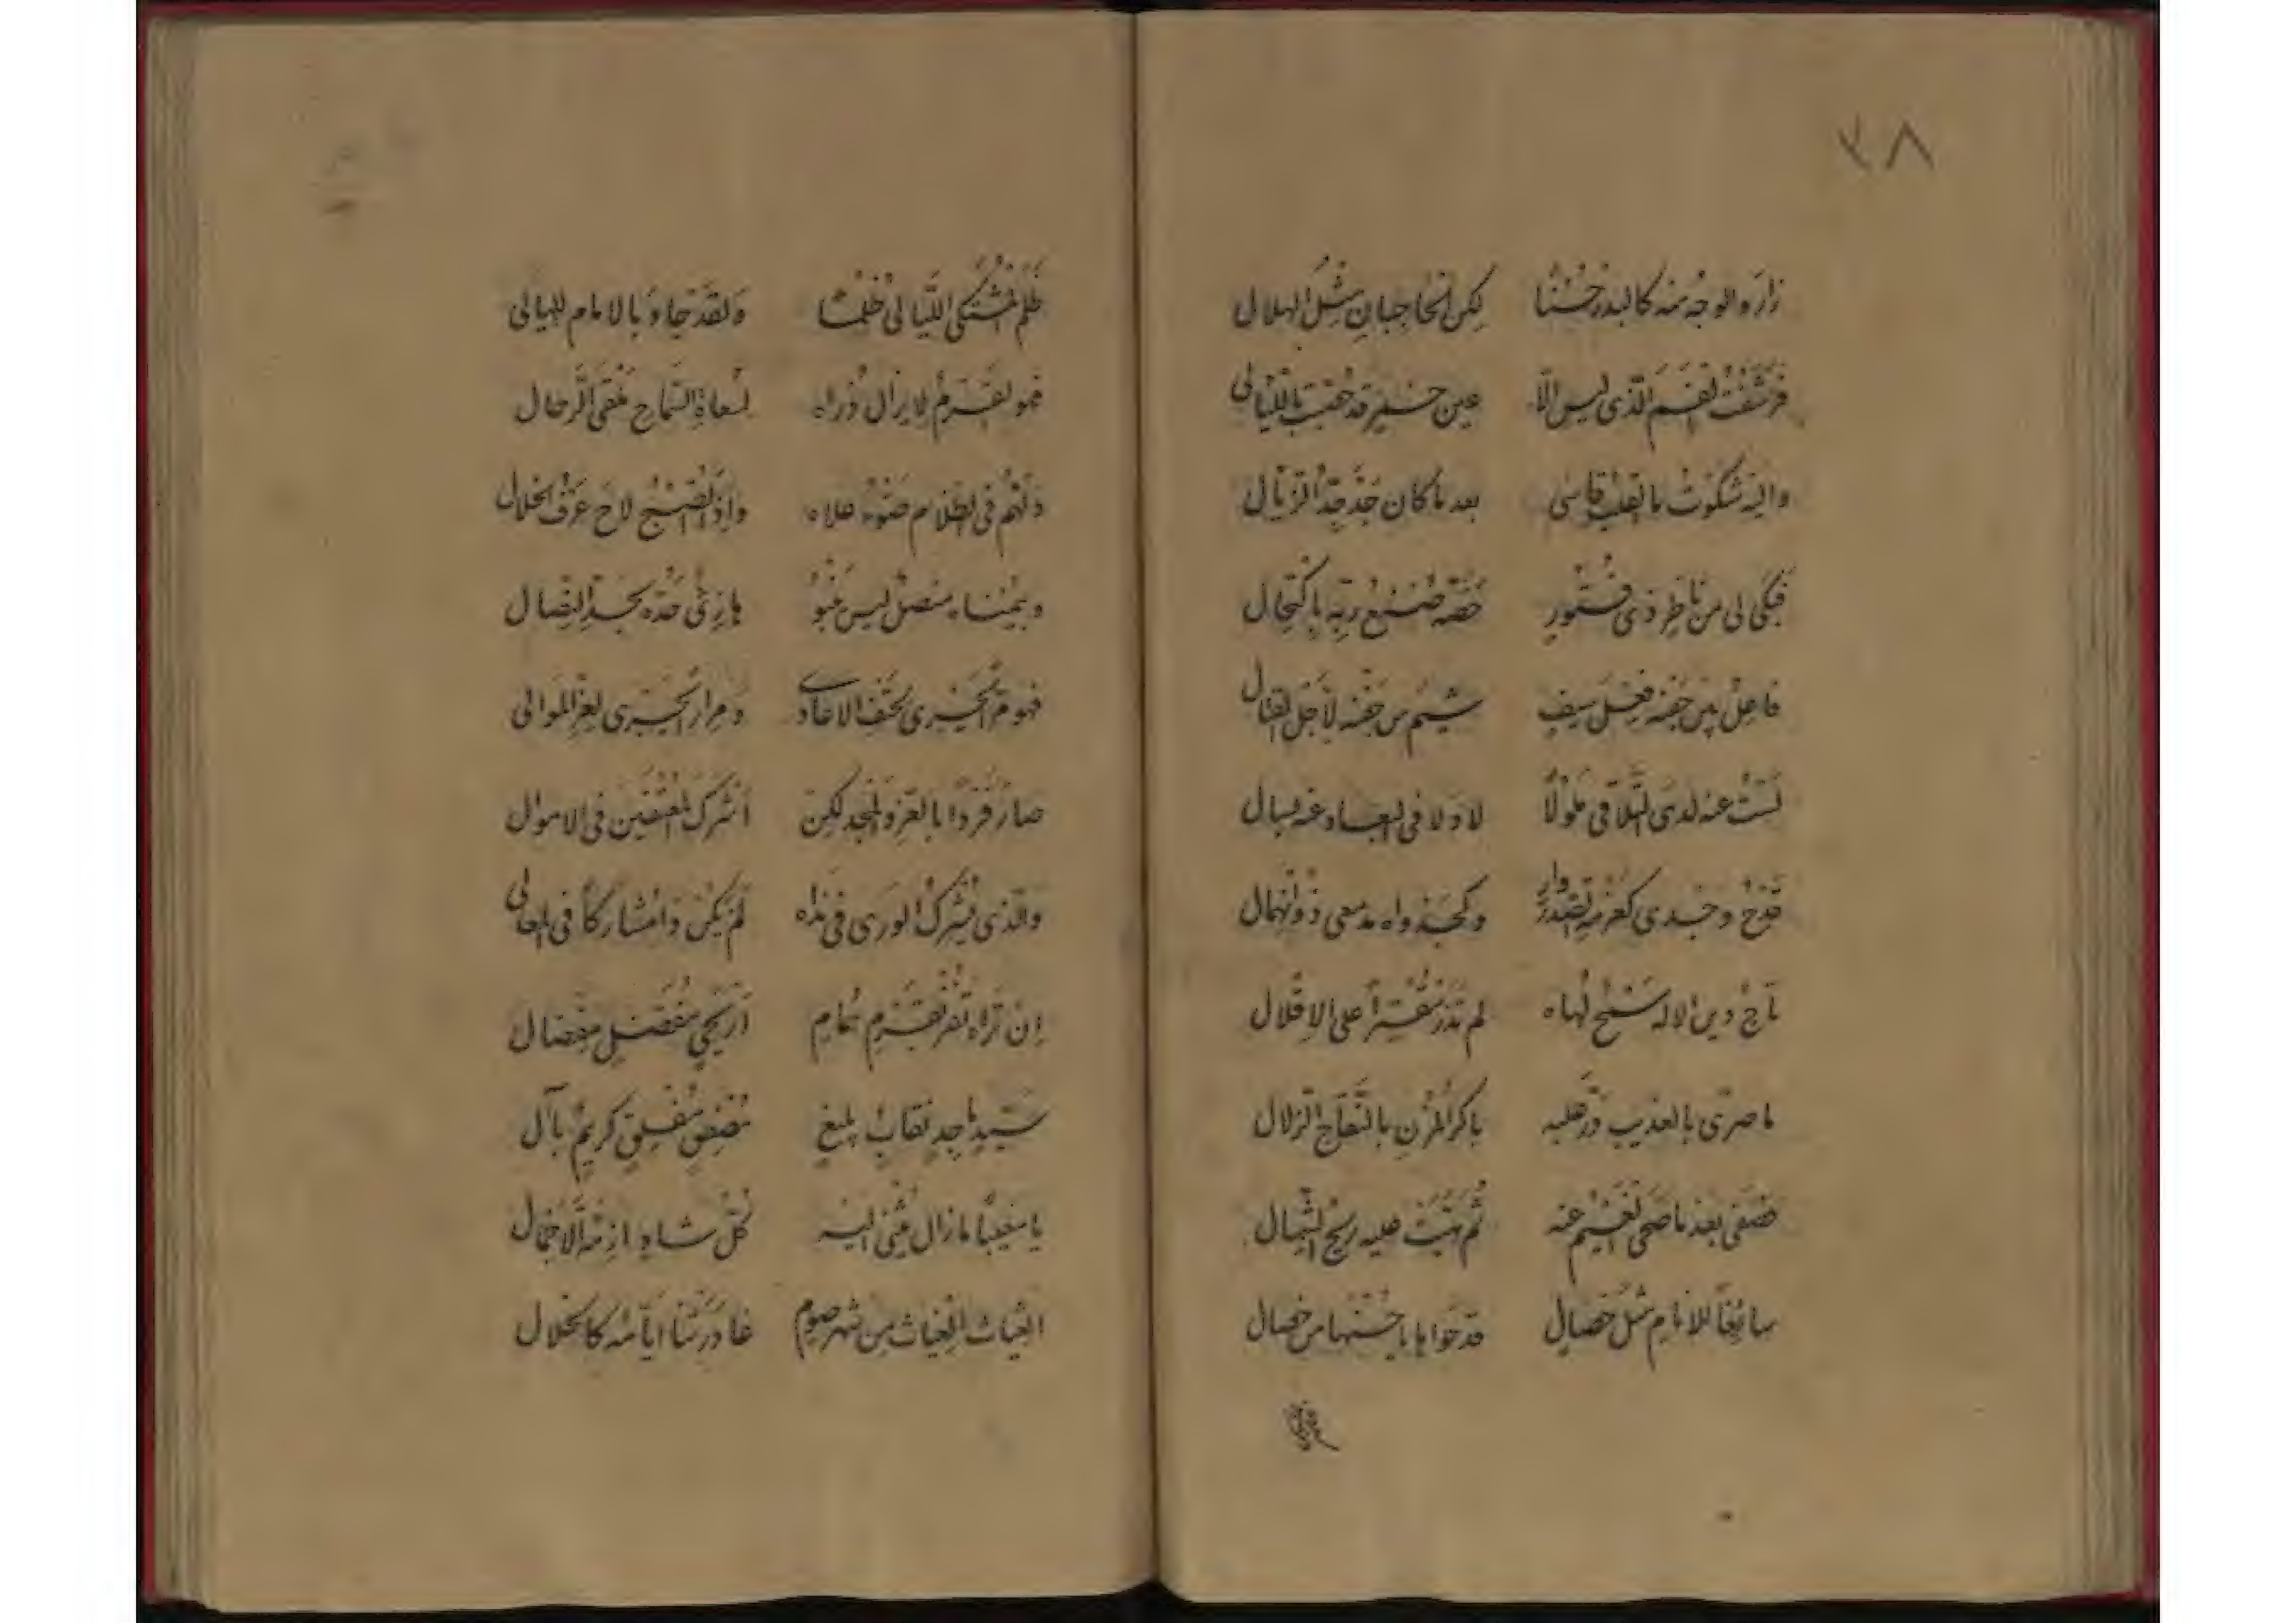 ٣٨
زار والوجه منه كالبدر حسنا لكن الحاجبان مثل الهلال
فرشفت الفم الذي ليس الا عين خمر قد حقبت بالليالي
واليه شكوت ما القلب قاسى بعد ما كان جذ جد الزيال
فبكى لي من ناظر ذي فتور خصه صنع ربه باكتحال
فاعل بين جفنه فعل سيف شيم من جفنه لأجل القتال
لست عنه لدى التلاقي ملولا لا ولا في البعاد عنه بسال
قدح وجدي كعزمه الصدر وار وكجدواه مدمعي ذو انهمال
تاج دين الاله سمح لهاه لم تذر مقترا على الاقلال
ما صرى بالعذيب در عليه باكر المزن بالنقاخ الزلال
فصفى بعد ما صحى الغيم عنه ثم هبت عليه ريح الشمال
سائغا للانام مثل خصال قد حواها يا حسنها من خصال
ظلم المشتكي الليالي ظلما ولقد جاء بالامام الليالي
فهو القرم لا يزال ذراه لسعاة السماح ملقى الرحال
دلهم في الظلام ضوء علاه واذا الصبح لاح عرف الخلال
وبيمناه منصل ليس ينبو هازئ حده بحد النصال
فهو مر يجري لحتف الاعادي ومرار يجري لعز الموالي
صار فردا بالعز والمجد لكن اشرك المعتفين في الاموال
والذي يشرك الورى في نداه لم يكن ذا مشاركا في المعالي
ان تراه تفز بقرم همام اريحي مفضل مفضال
سيد ماجد نقاب بليغ مصقع مفلق كريم بآل
يا مغيبا ما زال يثني اليه كل شاه ازمة الاجمال
الغياث الغياث من شهر صوم غادرتنا ايامه كالخلال